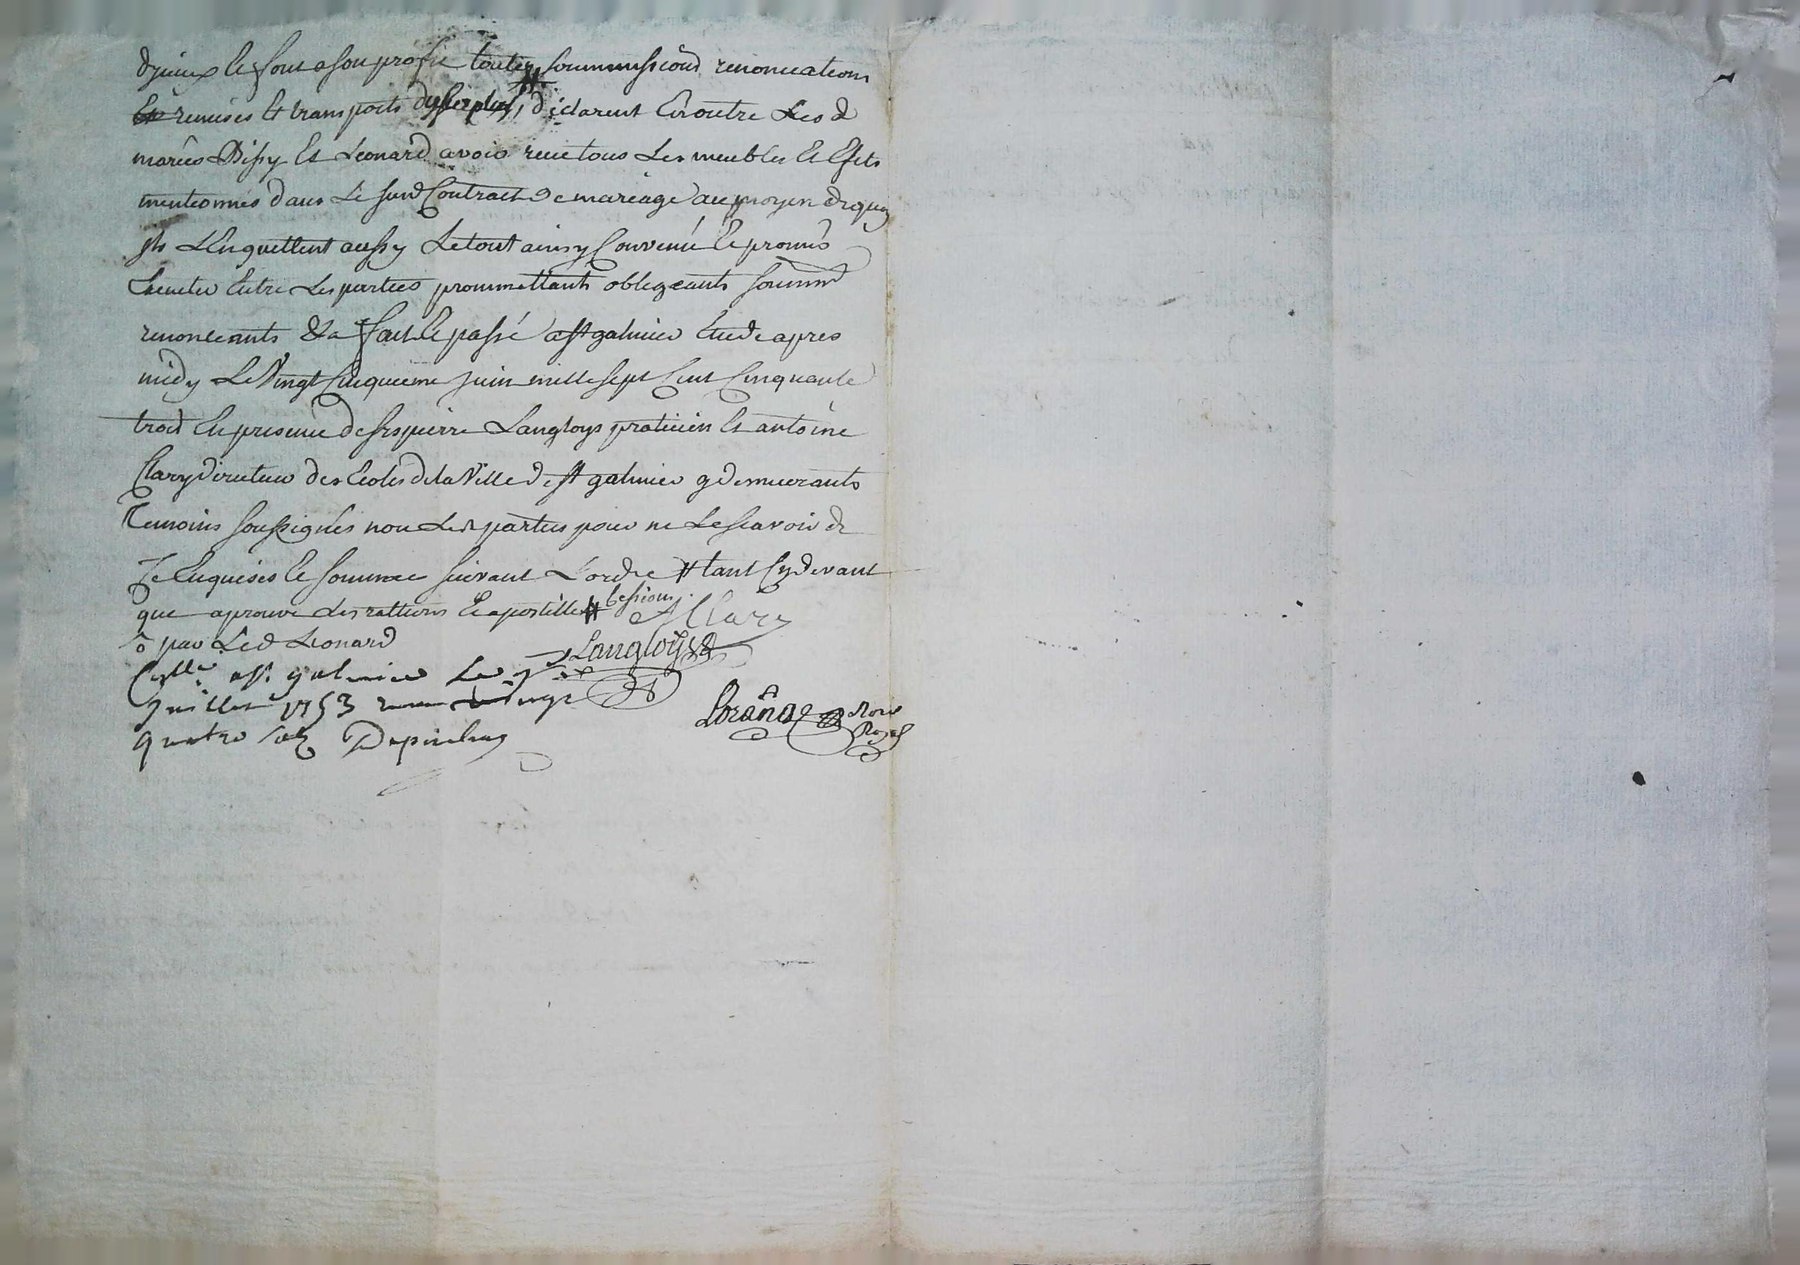 d'yceux et font a son profit toutes soummissions renonciations
Et remises et transports declarent En outre Les d
mariés Dissy Et Leonard avoir receu tous Les meubles Et Efets
mentionnés dans Le sus d Contract de mariage au moyen dequoy
ils L'Enquittent aussy Le tout ainsy Convenu Et promis
Executer Entre Les parties prommettants obligeants soummt
renonceants &a fait Et passé a st galmier Etude apres
midy Le Vingt Cinquieme Juin mille sept Cent Cinquante
trois En presence de srs pierre Langloys praticien Et antoine
Clary directeur des Ecoles de la Ville de st galmier y demeurants
temoins soussignés non Les d parties pour ne Le scavoir de
Ce Enquises Et sommées suivant L'ordce # tant Cy devant
que aprouvé Et apostille # Cessions
par Led Leonard
A Clary
Langloys
Conllé a st galmier Le
Juillet 1753 vingt
quatre sols
Notre
Royal